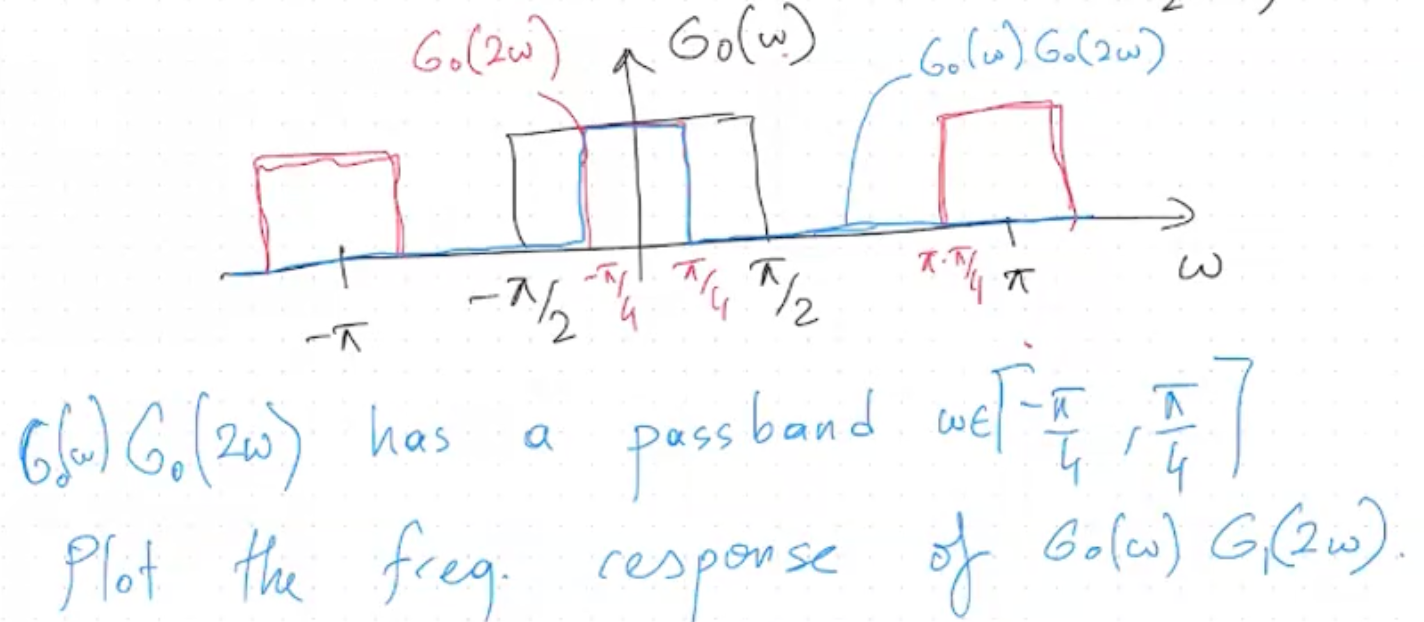 G₀(2ω) G₀(ω) G₀(ω) G₀(2ω)
-π -π/2 -π/4 π/4 π/2 π-π/4 π ω
G₀(ω) G₀(2ω) has a passband ω∈[-π/4, π/4]
Plot the freq. response of G₀(ω) G₁(2ω).